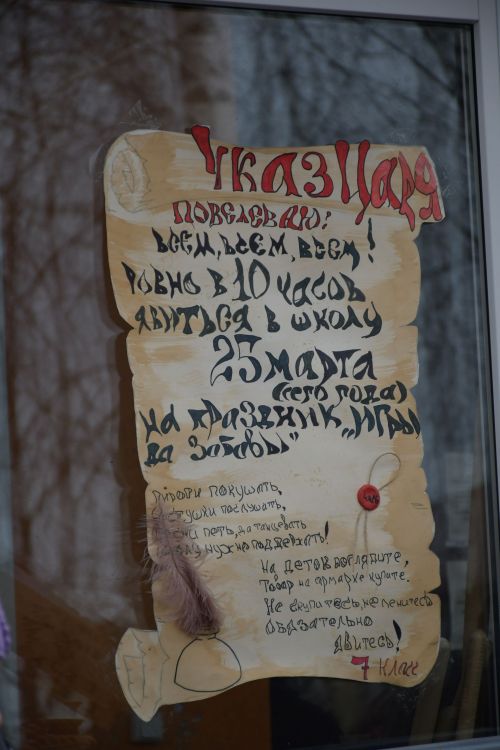 Указ Царя
Повелеваю:
Всем, всем, всем!
Ровно в 10 часов
явиться в школу
25 марта
(сего года)
на праздник „Игры
да забавы"
Пироги покушать,
частушки послушать,
песни петь, да танцевать
нужно поддержать!
На деток поглядите,
Товар на ярмарке купите.
Не скупитесь, не ленитесь
обязательно
явитесь!
7 класс